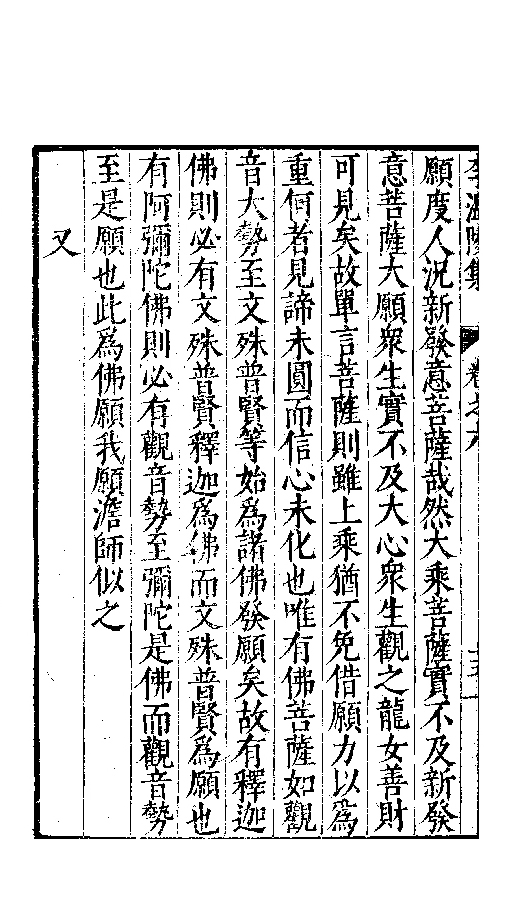 李溫陵集 卷之六
願度人況新發意菩薩哉然大乘菩薩實不及新發
意菩薩大願衆生實不及大心衆生觀之龍女善財
可見矣故單言菩薩則雖上乘猶不免借願力以爲
重何者見諦未圓而信心未化也唯有佛菩薩如觀
音大勢至文殊普賢等始爲諸佛發願矣故有釋迦
佛則必有文殊普賢釋迦爲佛而文殊普賢爲願也
有阿彌陀佛則必有觀音勢至彌陀是佛而觀音勢
至是願也此爲佛願我願澹師似之
又